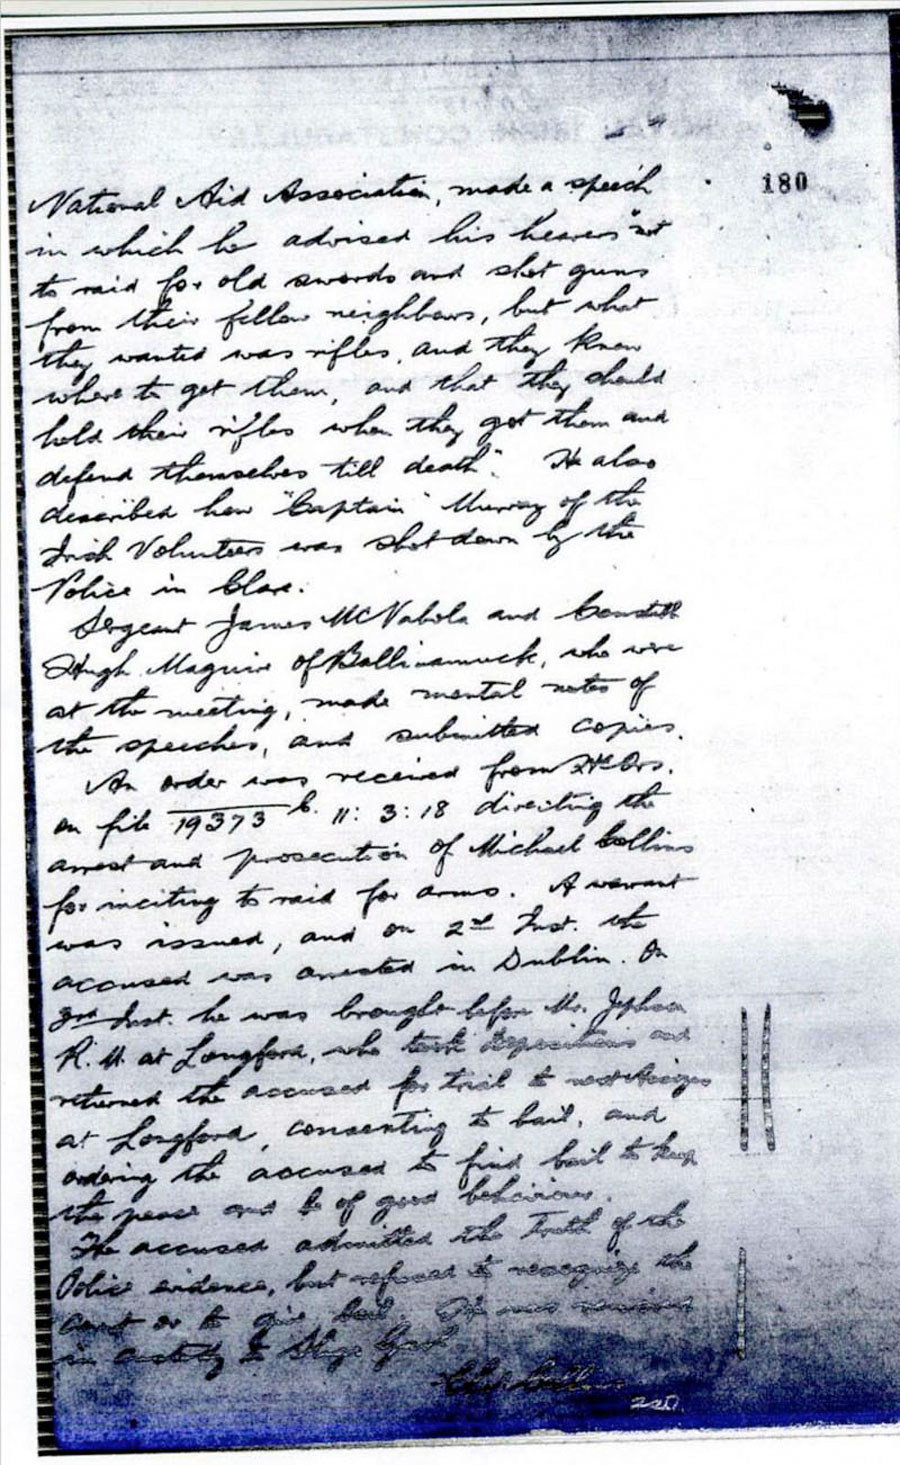 180
National Aid Association, made a speech
in which he advised his hearers "not
to raid for old swords and shot guns
from their fellow neighbours, but what
they wanted was rifles, and they knew
where to get them, and that they should
hold their rifles when they got them and
defend themselves till death". He also
described how "Captain" Murray of the
Irish Volunteers was shot down by the
Police in Clare.
Sergeant James McNabola and Constable
Hugh Maguire of Ballinamuck, who were
at the meeting, made mental notes of
the speeches, and submitted copies.
An order was received from Hd Qrs.
on file 19373 C. 11:3:18 directing the
arrest and prosecution of Michael Collins
for inciting to raid for arms. A warrant
was issued, and on 2nd Inst. the
accused was arrested in Dublin. On
3rd Inst. he was brought before Mr. Jephson
R.M. at Longford, who took depositions and
returned the accused for trial to next Assizes
at Longford, consenting to bail, and
ordering the accused to find bail to keep
the peace and be of good behaviour.
The accused admitted the truth of the
Police evidence, but refused to recognize the
court or to give bail. He was removed
in custody to Sligo Gaol
220